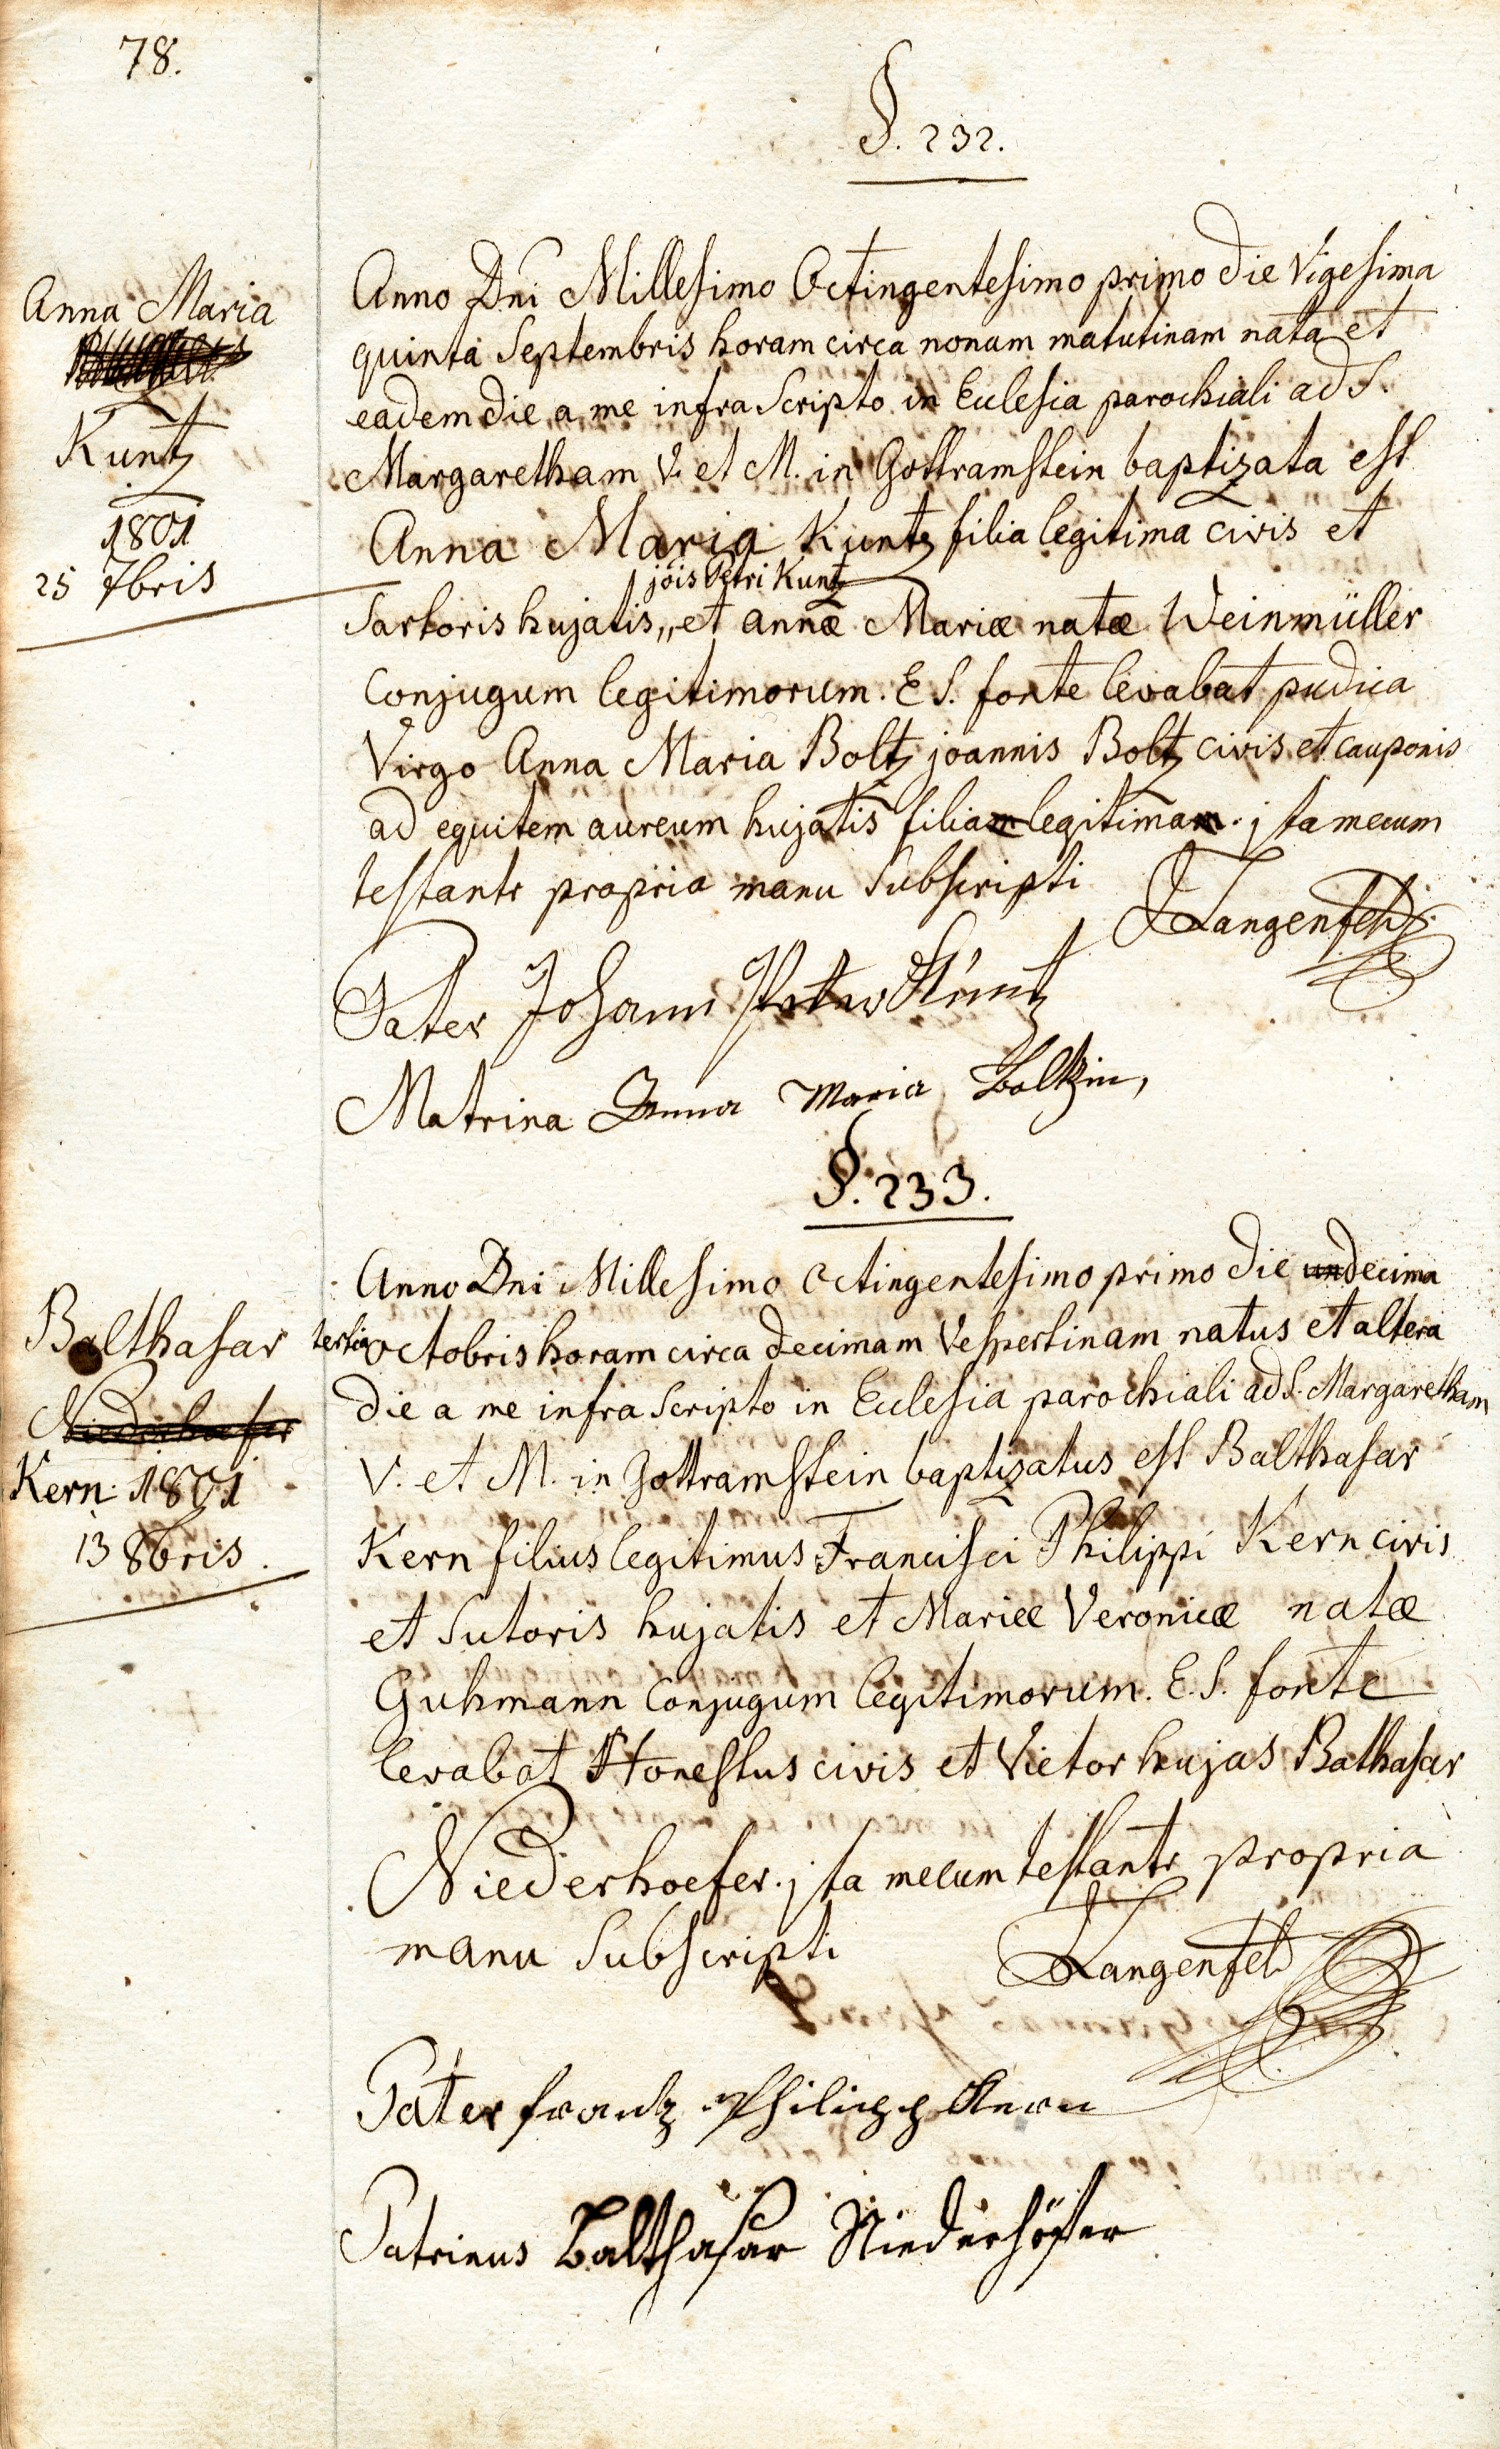 78.
§. 232.
Anna Maria
Kuntz
1801
25 7bris
Anno Dni Millesimo Octingentesimo primo die Vigesima
quinta Septembris horam circa nonam matutinam nata et
eadem die a me infra Scripto in Eclesia parochiali ad S.
Margaretham V. et M. in Gottramstein baptizata est
Anna Maria Kuntz filia legitima civis et
jois Petri Kuntz
Sartoris hujatis,, et annæ Mariæ natæ Weinmüller
Conjugum legitimorum. E S. fonte levabat pudica
Virgo Anna Maria Boltz joannis Boltz civis et cauponis
ad equitem aureum hujatis filiam legitimam. jta mecum
testante propria manu Subscripti
Langenfeld
Pater Johann Peter Kuntz
Matrina Anna Maria Boltzin,
§. 233.
Balthasar
Niederhoefer
Kern 1801
13 8bris.
Anno Dni Millesimo Octingentesimo primo die undecima
tertia octobris horam circa decimam Vespertinam natus et altera
die a me infra Scripto in Eclesia parochiali ad S. Margaretham
V. et M. in Gottramstein baptizatus est Balthasar
Kern filius legitimus Francisci Philippi Kern civis
et Sutoris hujatis et Mariæ Veronicæ natæ
Guhmann Conjugum legitimorum. E. S. fonte
levabat Honestus civis et Vietor hujas Bathasar
Niederhoefer. jta mecum testante propria
manu Subscripti
Langenfeld
Pater franz Philipp Kern
Patrinus Balthasar Niederhöfer